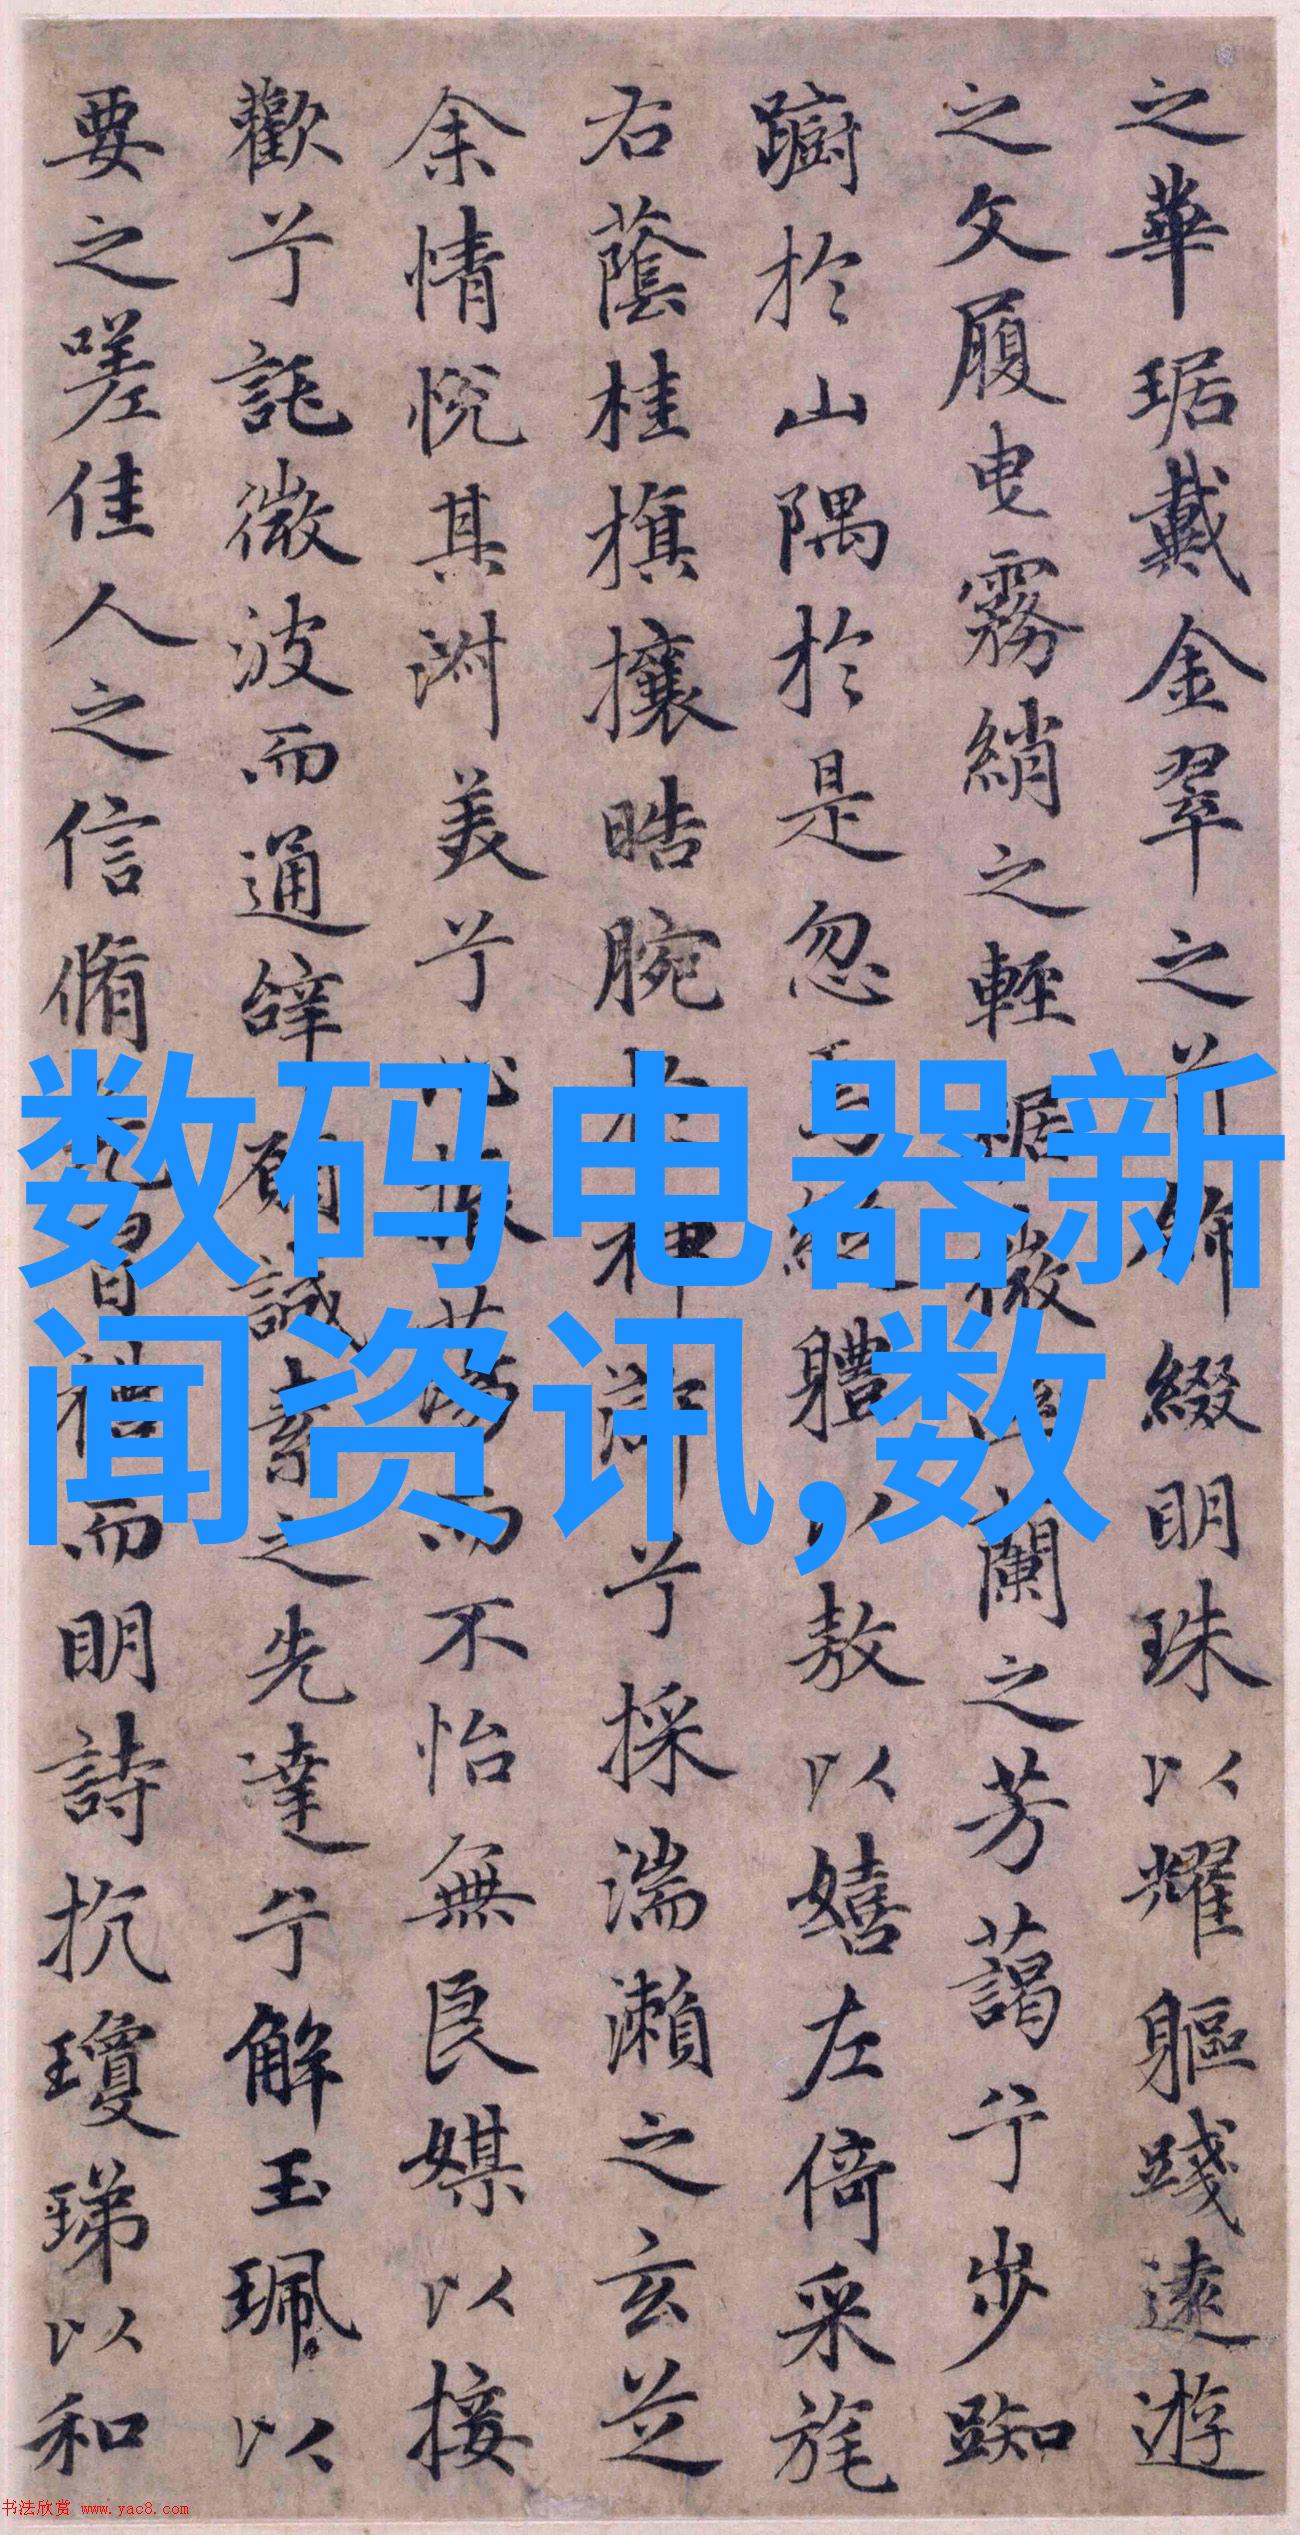 之華琚戴金翠之首飾綴明珠以耀軀踐遠遊
之文履曳霧綃之輕裾微幽蘭之芳藹兮步踟
躕於山隅於是忽焉縱軆以敖以嬉左倚采旄
右蔭桂旗攘晧腕於神滸兮採湍瀨之玄芝
余情悅其淑美兮心振蕩而不怡無良媒以接
歡兮託微波而通辝願誠素之先達兮解玉珮以
要之嗟佳人之信脩羌習禮而明詩抗瓊珶以和
数码电器新
闻资讯,数
书法欣赏 www.yac8.com